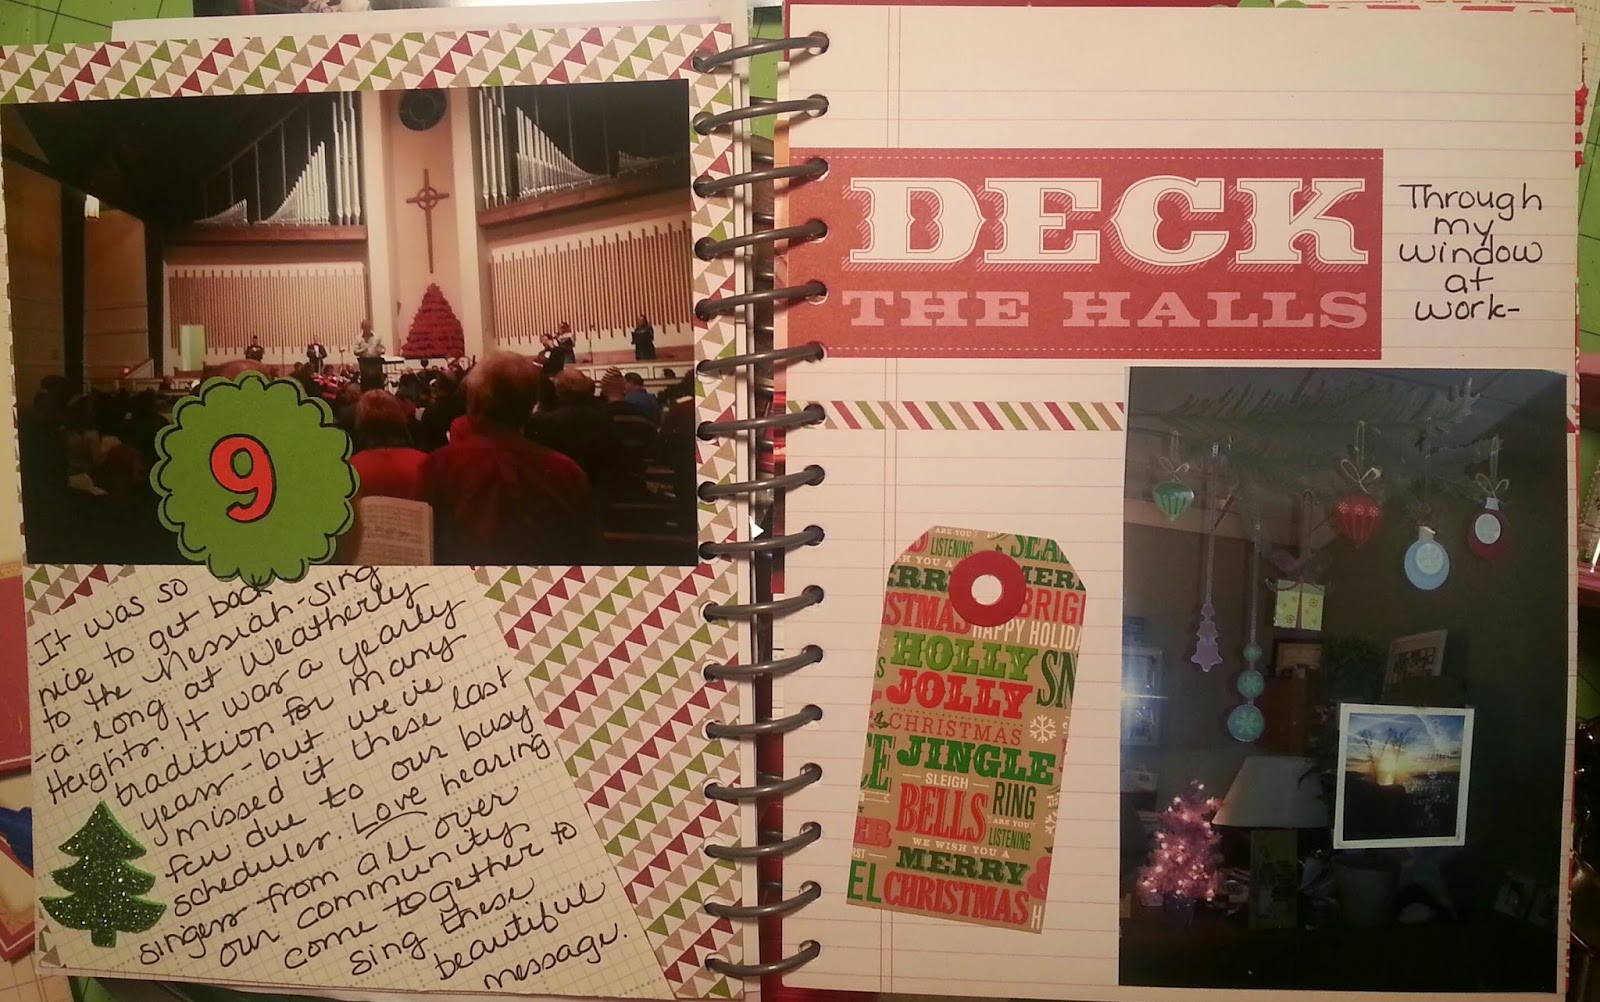 9
It was so
nice to get back
to the Messiah-sing
-a-long at Weatherly
Heights. It was a yearly
tradition for many
years - but we've
missed it these last
few due to our busy
schedules. Love hearing
singers from all over
our community
come together to
sing these
beautiful
message.
DECK
THE HALLS
Through
my
window
at
work-
ARE YOU
LISTENING
SEA
H YOU A
ERRY
MER
STMAS
BRIG
HAPPY HOLID
HOLLY
JOLLY
SN
CHRISTMAS
CE
JINGLE
SLEIGH
BELLS
RING
ARE YOU
LISTENING
WE WISH YOU A
MERRY
EL
CHRISTMAS
H